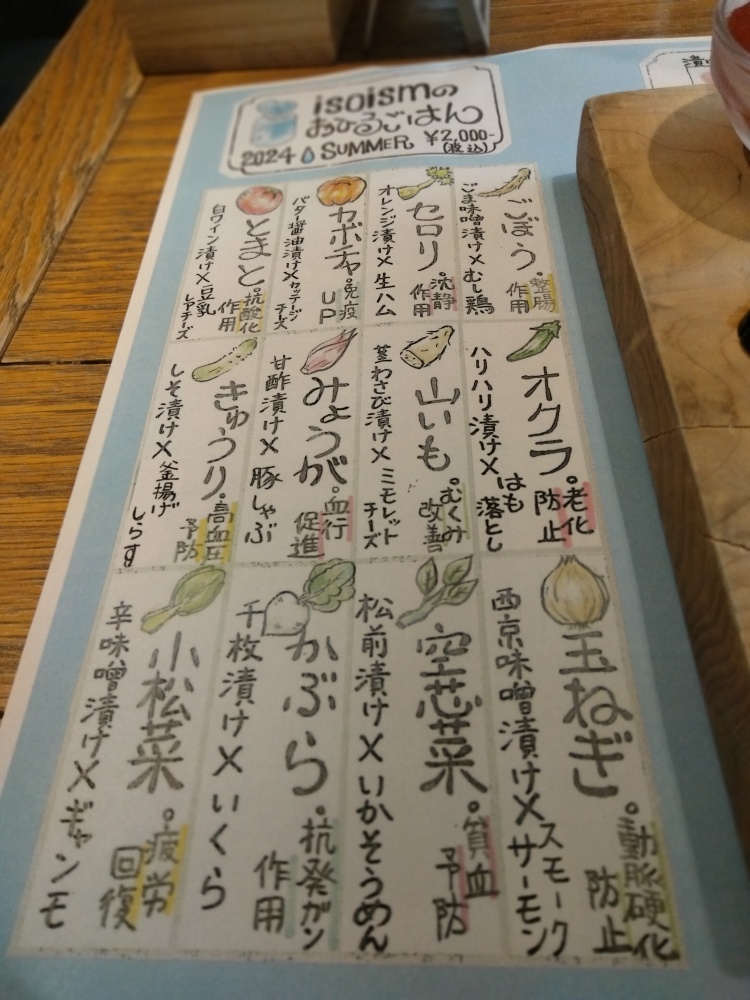 isoismの
おひるごはん
2024 SUMMER ¥2,000-
(税込)
漬
ごぼう。整腸
作用
ごま味噌漬け×むし鶏
セロリ。沈静
作用
オレンジ漬け×生ハム
カボチャ。免疫
UP
バター醤油漬け×カッテージ
チーズ
とまと。抗酸化
作用
白ワイン漬け×豆乳
レアチーズ
オクラ。老化
防止
ハリハリ漬け×はも
落とし
山いも。むくみ
改善
茎わさび漬け×ミモレット
チーズ
みょうが。血行
促進
甘酢漬け×豚しゃぶ
きゅうり。高血圧
予防
しそ漬け×釜揚げ
しらす
玉ねぎ。動脈硬化
防止
西京味噌漬け×スモーク
サーモン
空芯菜。貧血
予防
松前漬け×いかそうめん
かぶら。抗発ガン
作用
千枚漬け×いくら
小松菜。疲労
回復
辛味噌漬け×ギャンモ